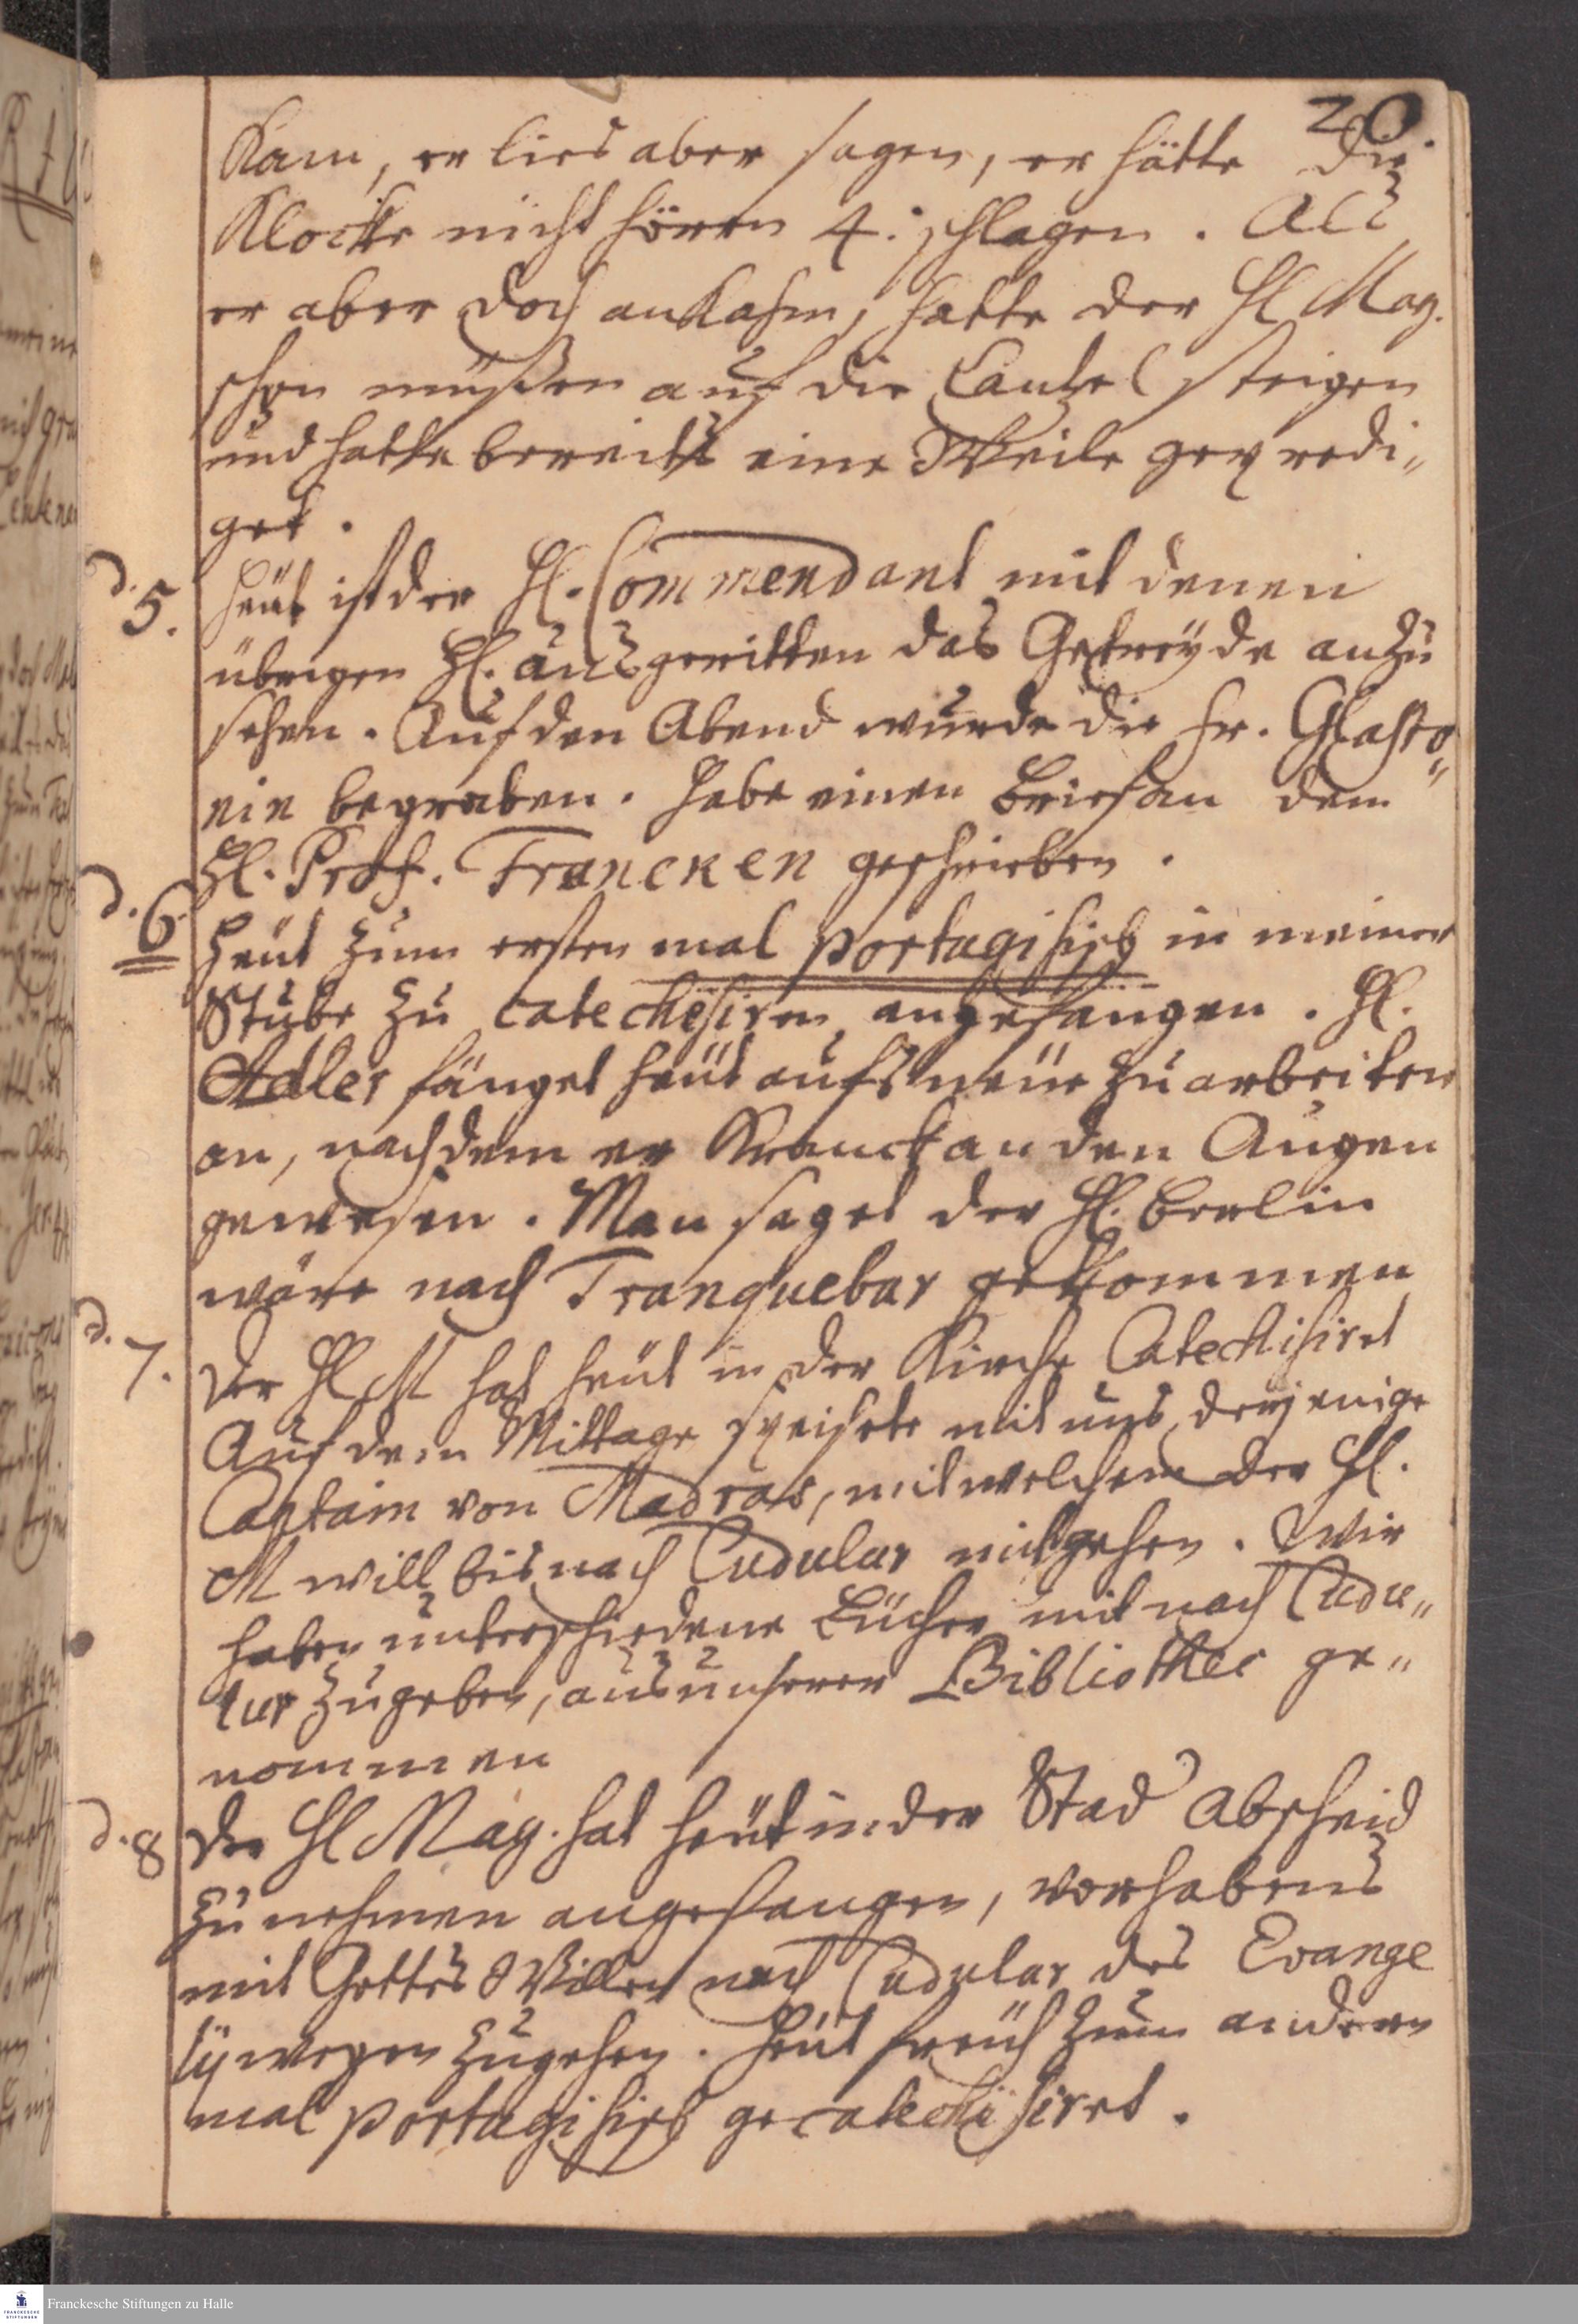 20.
Kam, er lies aber sagen, er hätte die
Klocke nicht hören 4. schlagen. Als
er aber doch ankahm, hatte der Hl Mag.
schon müßen auf die Cantzel steigen
und hatte bereits eine Weile gepredi„
get.
d. 5. Heut ist der Hl. Commendant mit denen
übrigen Hl. ausgeritten das Getreyde anzu
sehen. Auf den Abend wurde die Fr.
nin begraben. Habe einen Brief an dem
Hl. Prof. Francken geschrieben.
d. 6. Heut zum ersten mal portugisisch in meiner
Stube zu catechesiren angefangen. Hl.
Adler fänget heut aufs neue zu arbeiten
an, nachdem er Kranck an den Augen
gewesen. Man saget der Hl. Berlin
wäre nach Tranquebar gekommen
d. 7. Der Hl M hat heut in der Kirche Catechisiret
Auf dem Mittage speisete mit uns derjenige
Captain von Madras, mit welchem der Hl.
M will bis nach Cudulur mitgehen. Wir
haben unterschiedene Bücher mit nach Cudu„
lur zugeben, aus unserer Bibliothec ge„
nommen
d. 8 Der Hl Mag. hat heut in der Stad Abscheid
zu nehmen angefangen, vorhabens
mit Gottes Willen nach Cudulur des Evange
lij wegen zugehen. Heut früh zum andern
mal portugisisch gecatechisiret.
Franckesche Stiftungen zu Halle